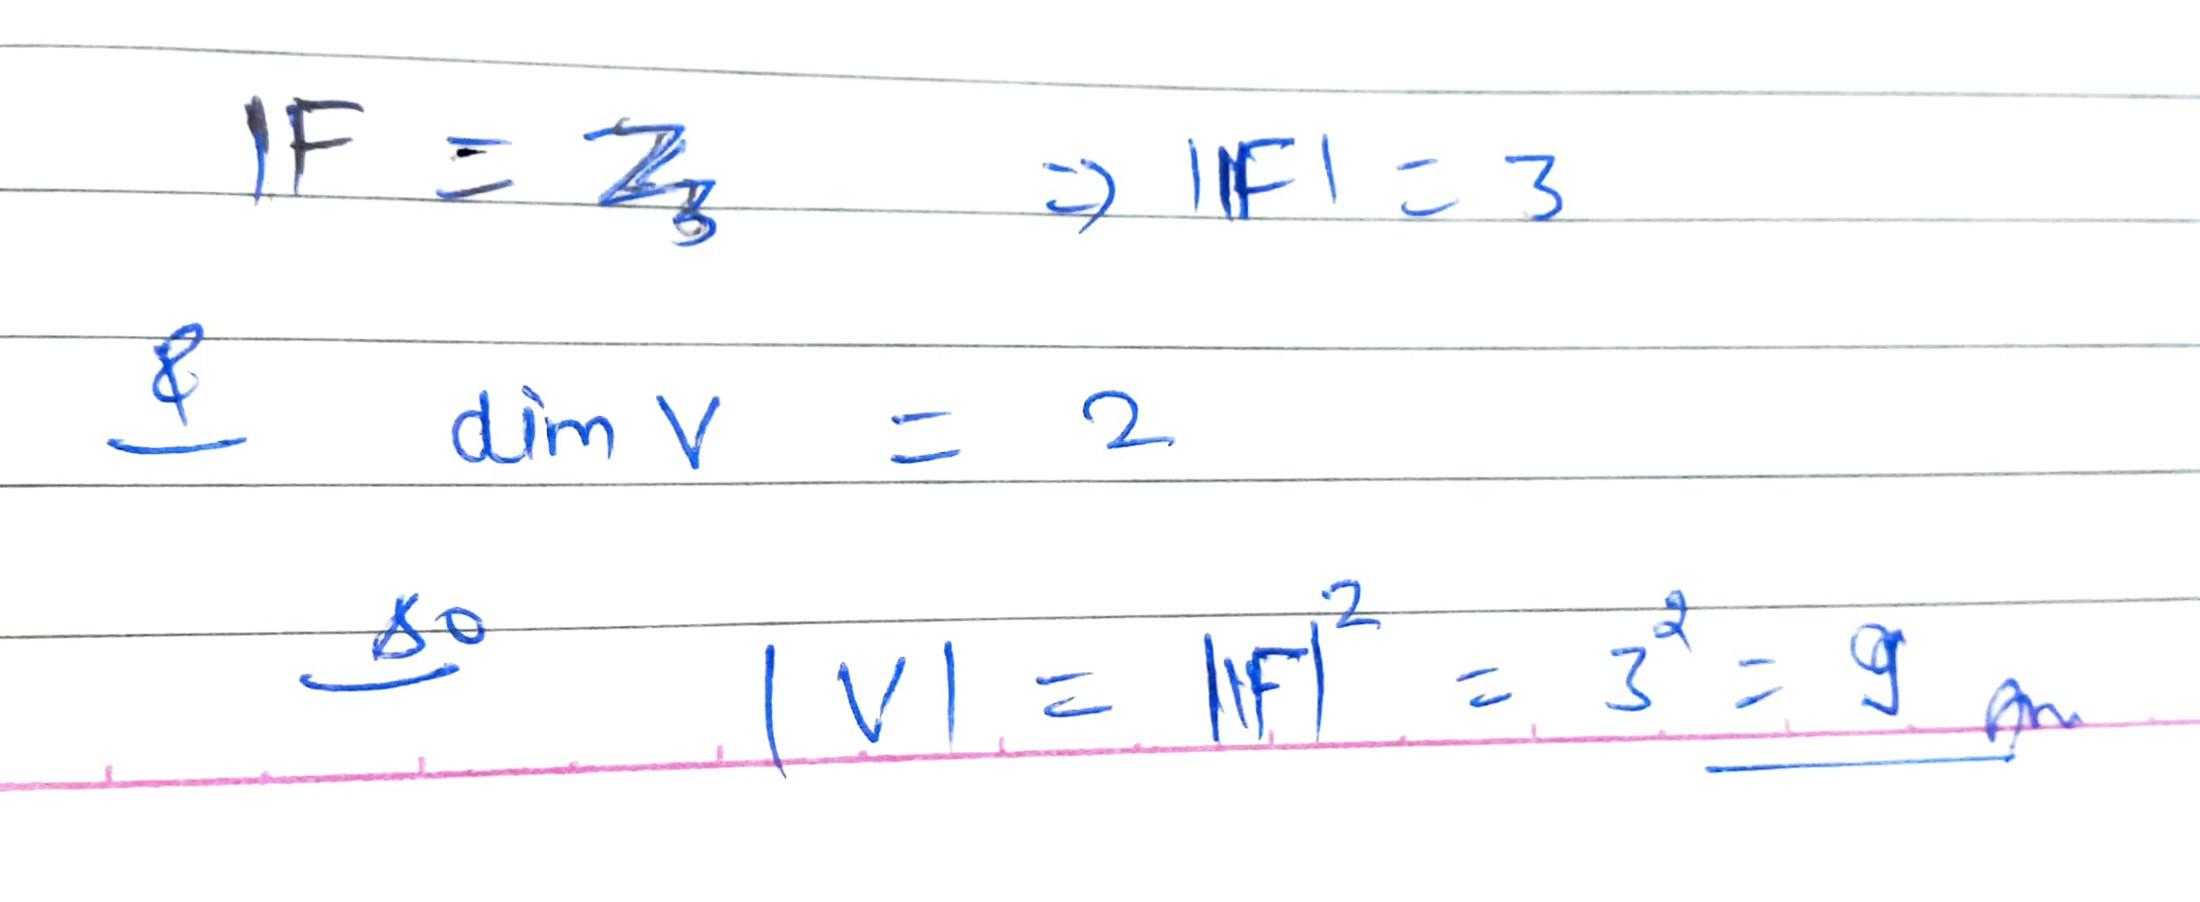 𝔽 = ℤ₃ ⇒ |𝔽| = 3
& dim V = 2
so |V| = |𝔽|² = 3² = 9 Ans